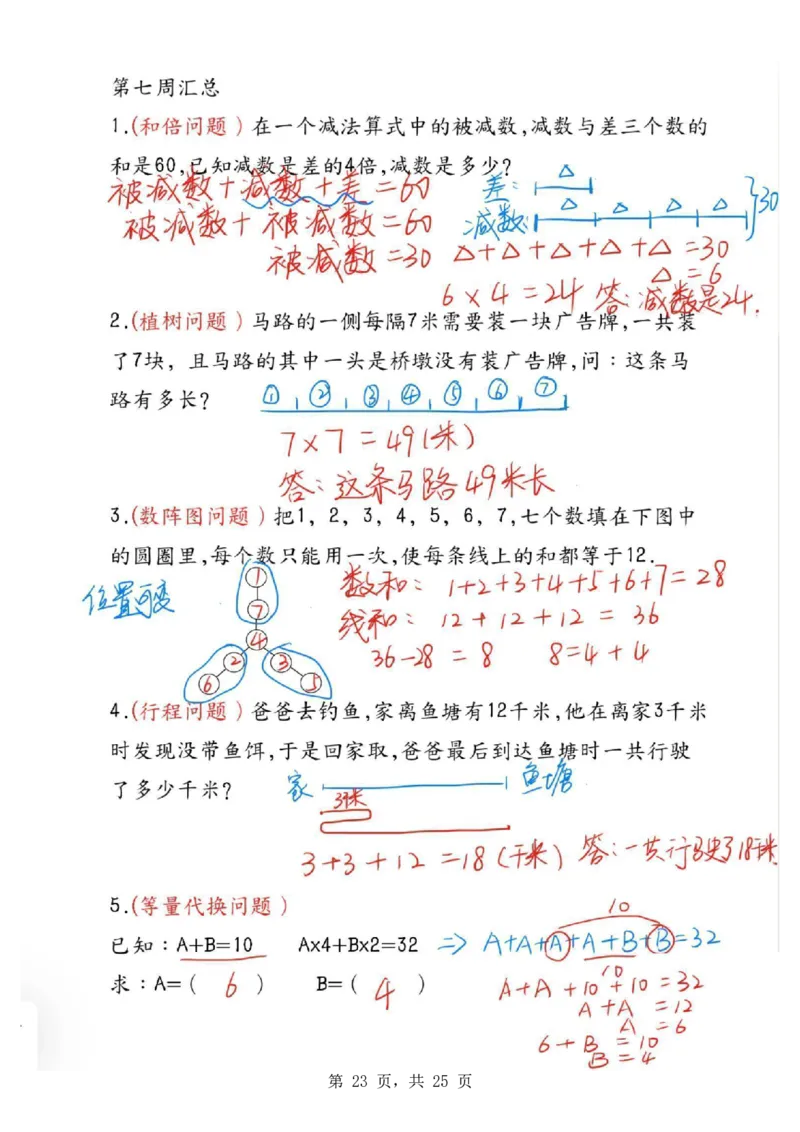 第七周汇总
1.(和倍问题)在一个减法算式中的被减数,减数与差三个数的
和是60,已知减数是差的4倍,减数是多少?
被减数+减数+差=60
差: △
被减数+被减数=60
减数: △ △ △ △ 30
被减数=30
△+△+△+△+△=30
△=6
6×4=24 答:减数是24.
2.(植树问题)马路的一侧每隔7米需要装一块广告牌,一共装
了7块，且马路的其中一头是桥墩没有装广告牌,问：这条马
路有多长?
① ② ③ ④ ⑤ ⑥ ⑦
7×7=49(米)
答:这条马路49米长
3.(数阵图问题)把1，2，3，4，5，6，7,七个数填在下图中
的圆圈里,每个数只能用一次,使每条线上的和都等于12.
位置可变
1
7
4
2 3
6 5
数和: 1+2+3+4+5+6+7=28
线和: 12+12+12=36
36-28=8 8=4+4
4.(行程问题)爸爸去钓鱼,家离鱼塘有12千米,他在离家3千米
时发现没带鱼饵,于是回家取,爸爸最后到达鱼塘时一共行驶
了多少千米?
家 鱼塘
3千米
3+3+12=18(千米) 答:一共行驶了18千米
5.(等量代换问题)
10
已知:A+B=10 Ax4+Bx2=32 => A+A+A+A+B+B=32
10
求:A=( 6 ) B=( 4 )
A+A+10+10=32
A+A=12
A=6
6+B=10
B=4
第 23 页，共 25 页